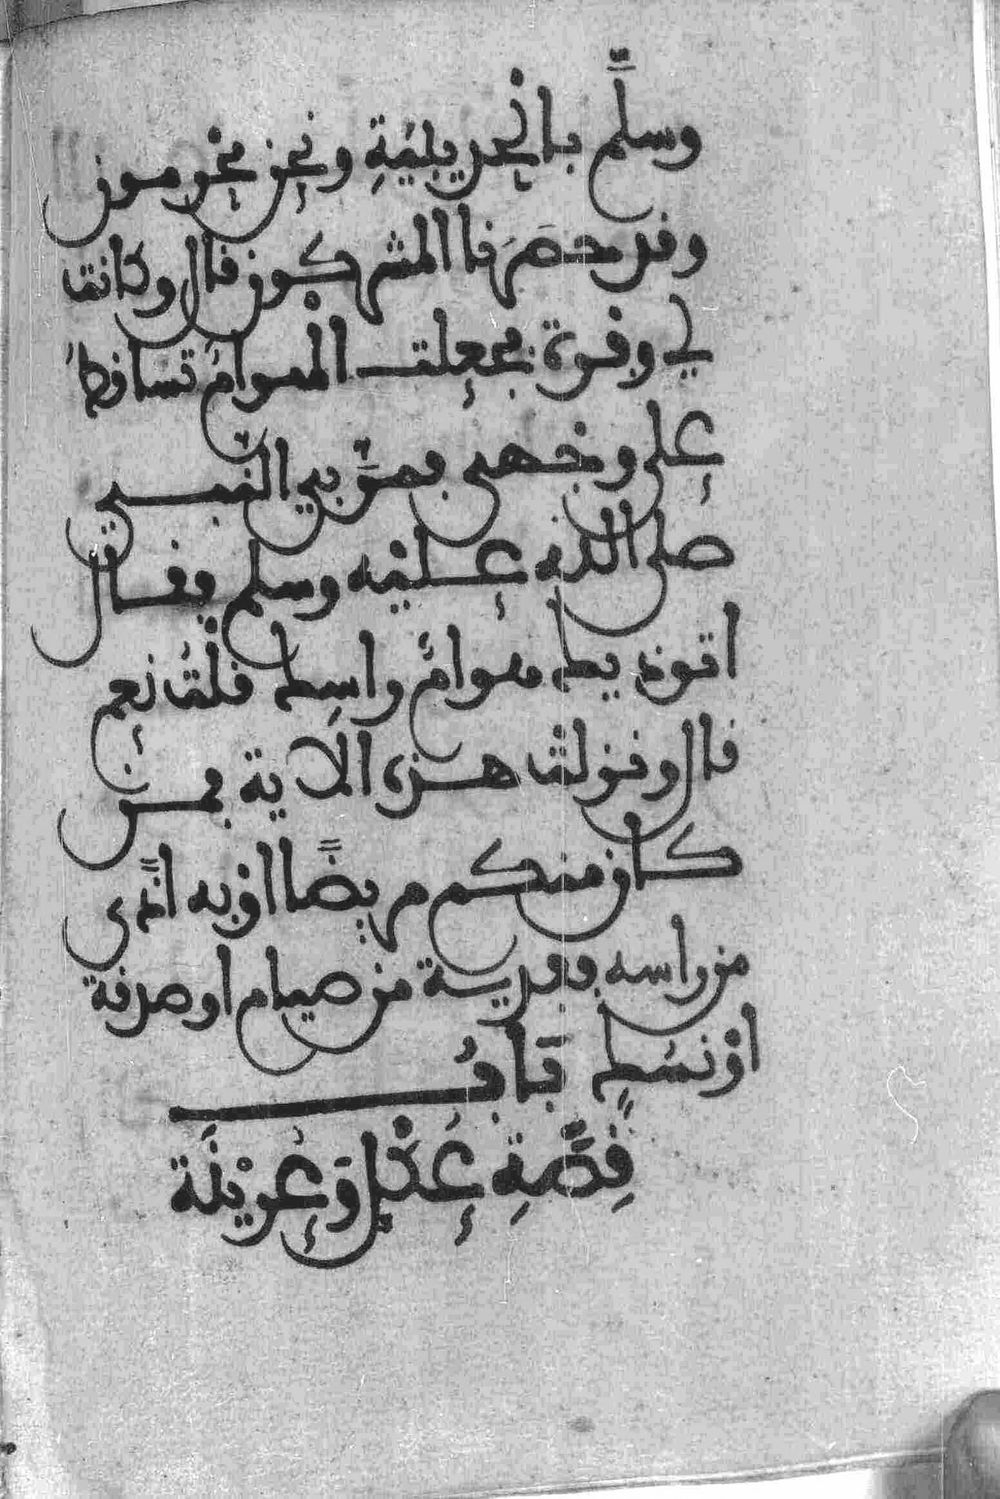 وسلّم بالحديبية ونحن محرمون
وقد حصرنا المشركون قال وكانت
لي وفرة فجعلت الهوام تساقط
على وجهي فمرّ بي النبي
صلى الله عليه وسلم فقال
اتوذيك هوامّ راسك قلت نعم
قال ونزلت هذه الاية فمن
كان منكم مريضًا او به اذًى
من راسه ففدية من صيام او صدقة
او نسك باب
قصّة عكل وعرينة